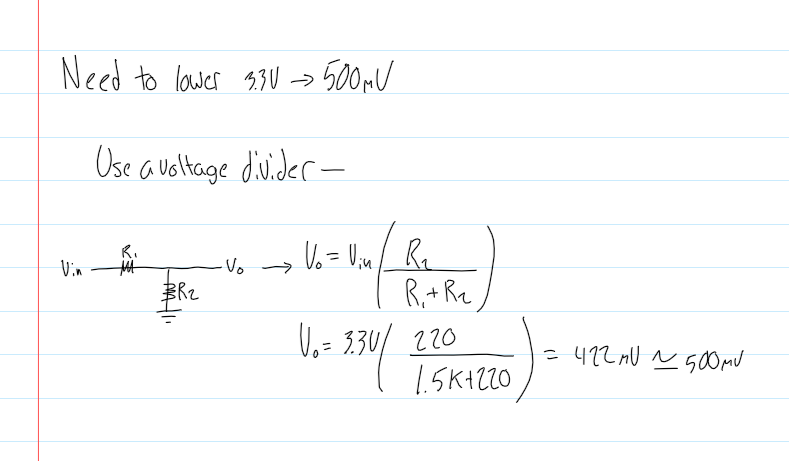 Need to lower 3.3V → 500mV
Use a voltage divider —
Vin R1 Vo → Vo = Vin (R2 / R1 + R2)
R2
Vo = 3.3V (220 / 1.5K+220) = 422mV ≃ 500mV